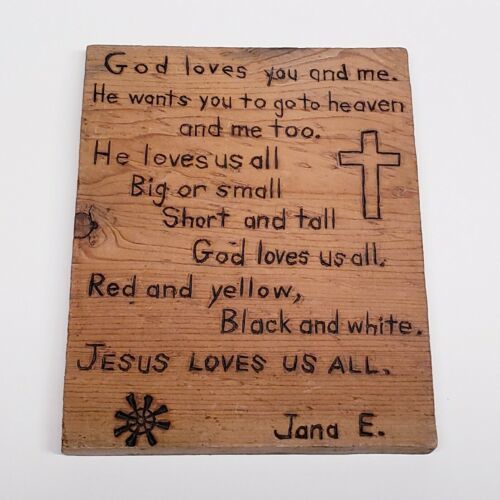 God loves you and me.
He wants you to go to heaven
and me too.
He loves us all
Big or small
Short and tall
God loves us all.
Red and yellow,
Black and white.
JESUS LOVES US ALL.
Jana E.